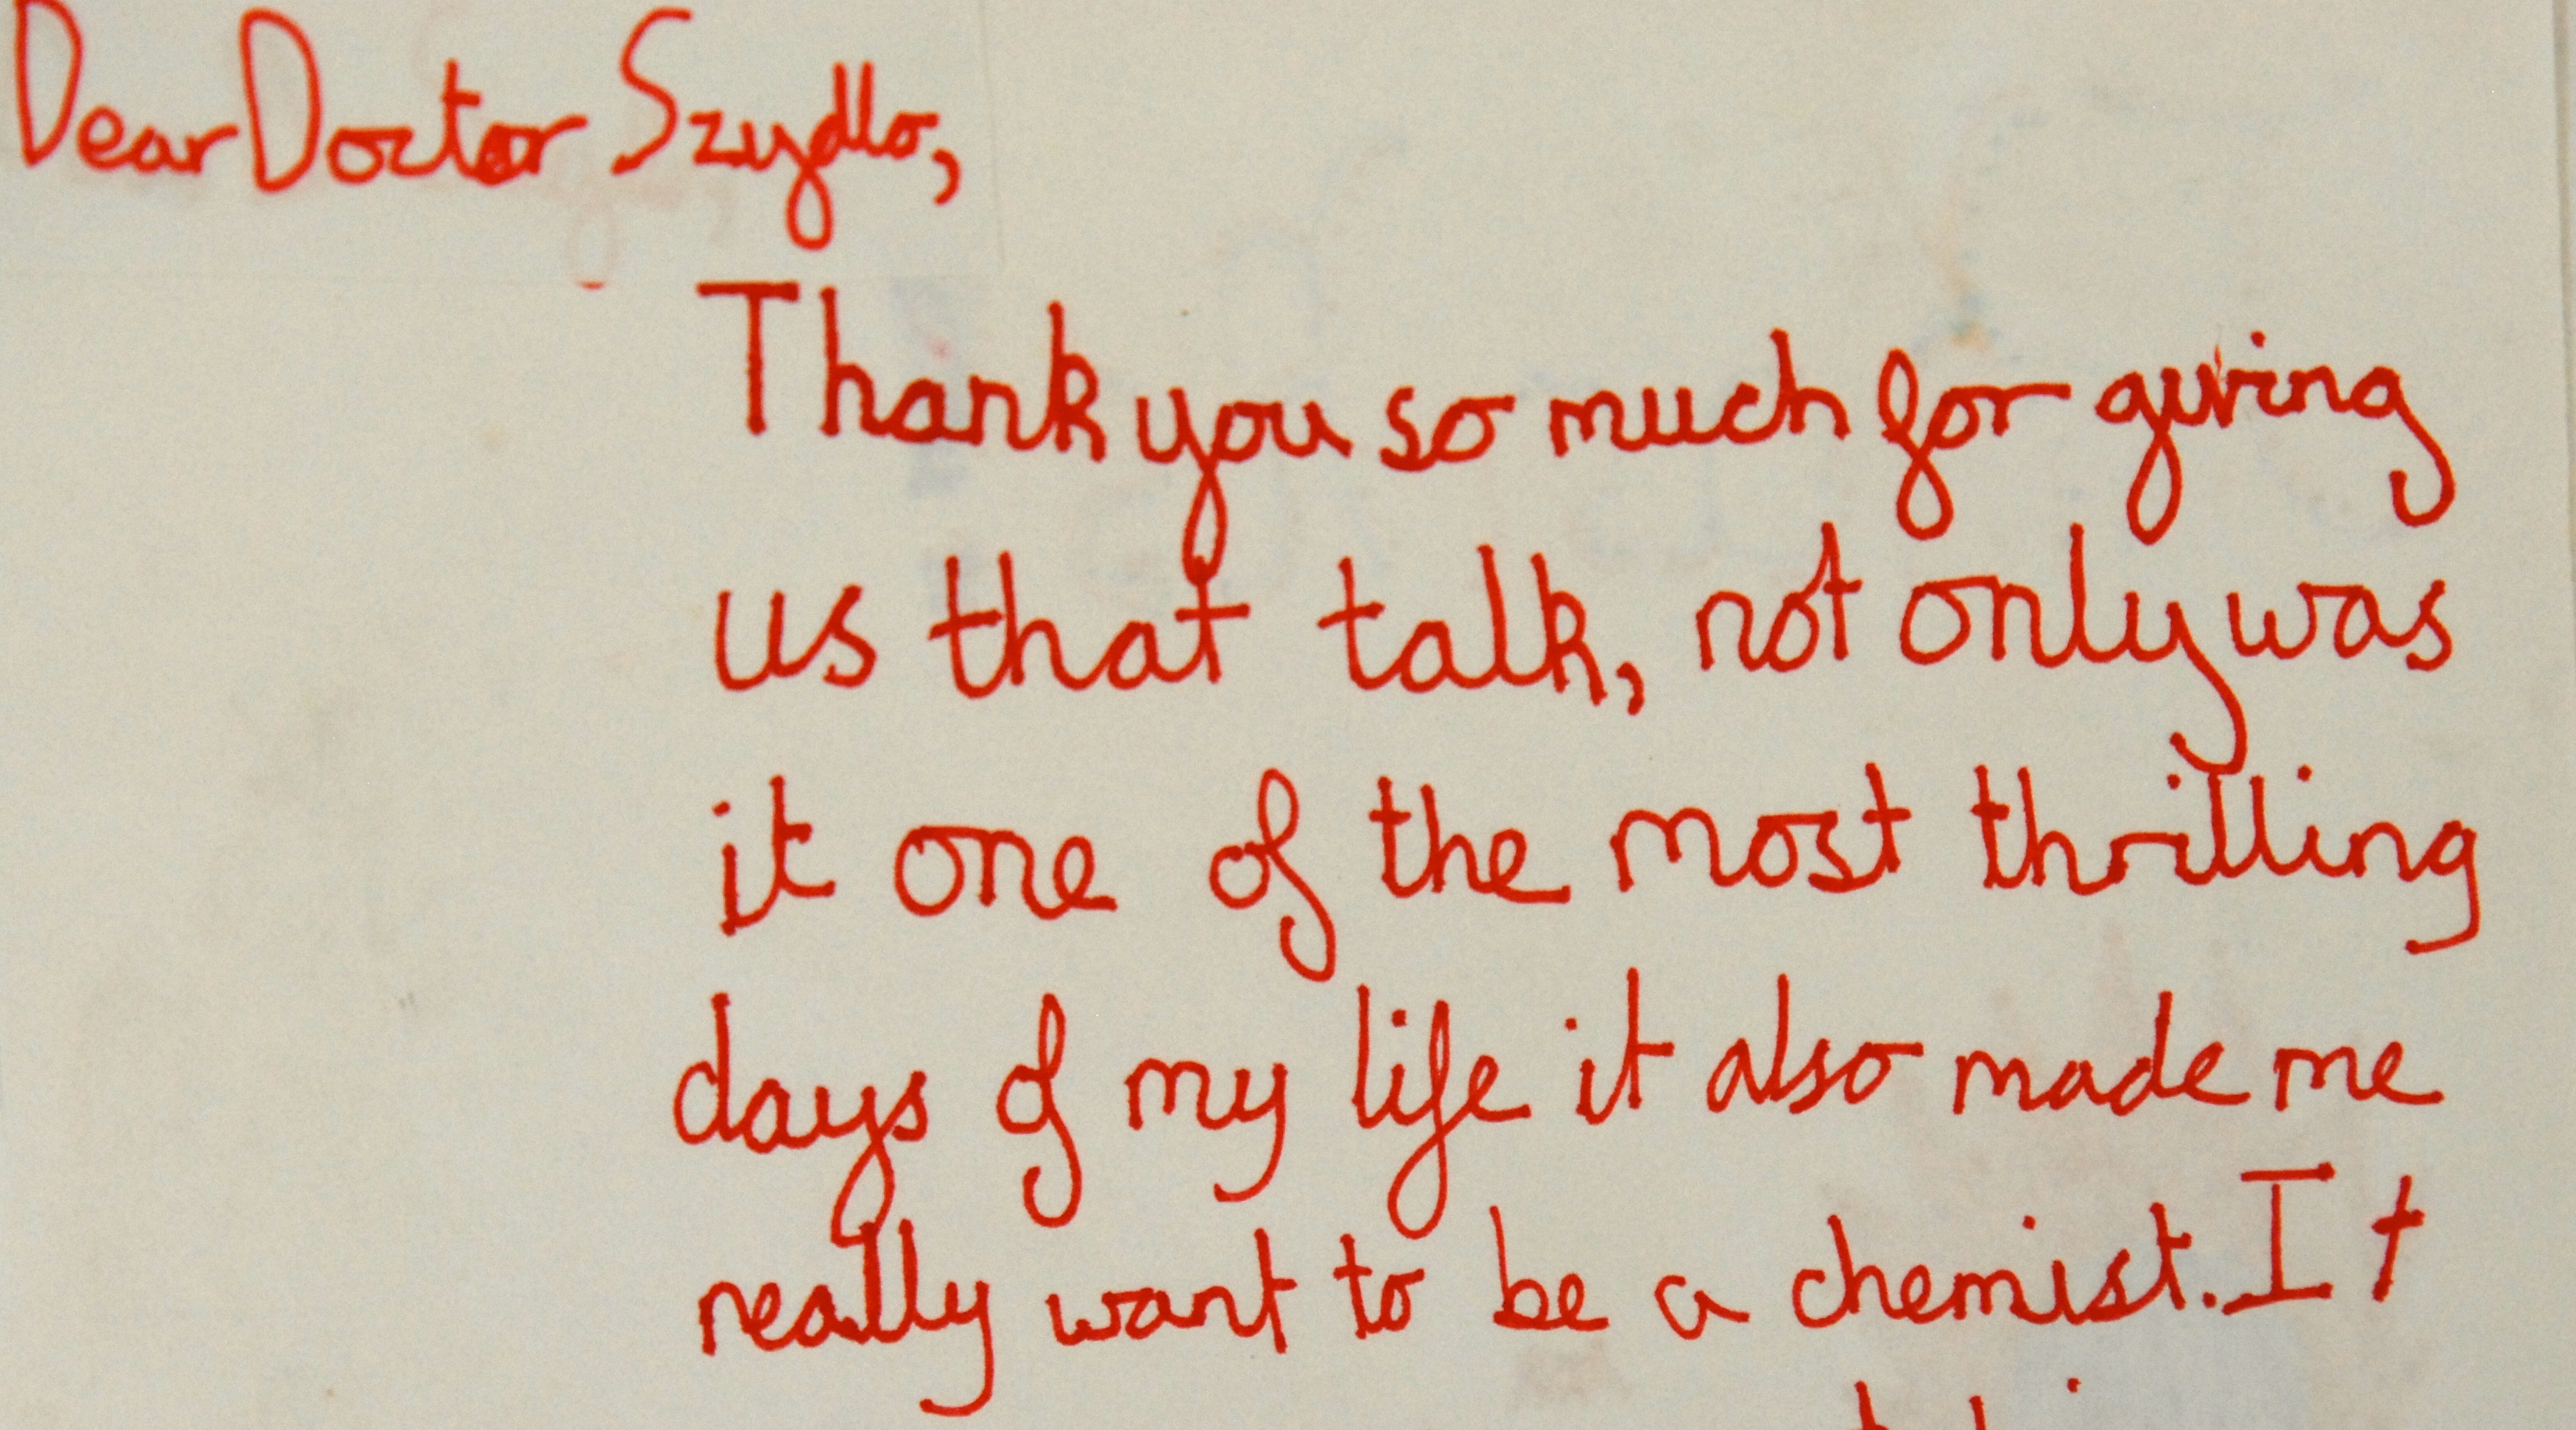 Dear Doctor Szydlo,
Thank you so much for giving
us that talk, not only was
it one of the most thrilling
days of my life it also made me
really want to be a chemist. It